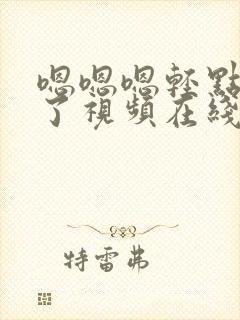 嗯嗯嗯轻點
了視頻在綫
特雷弗